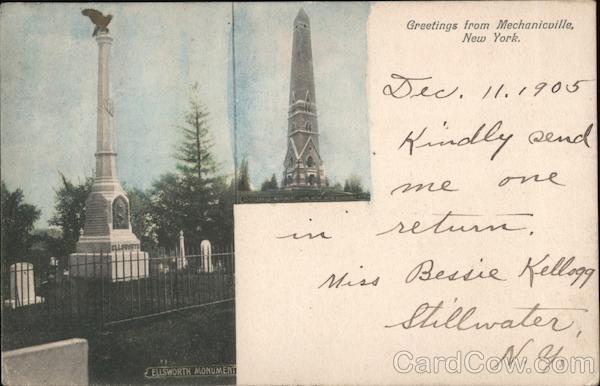 Greetings from Mechanicville,
New York.
Dec. 11. 1905
Kindly send
me one
in return.
Miss Bessie Kellogg
Stillwater,
N.Y.
ELLSWORTH
ELLSWORTH MONUMENT
CardCow.com